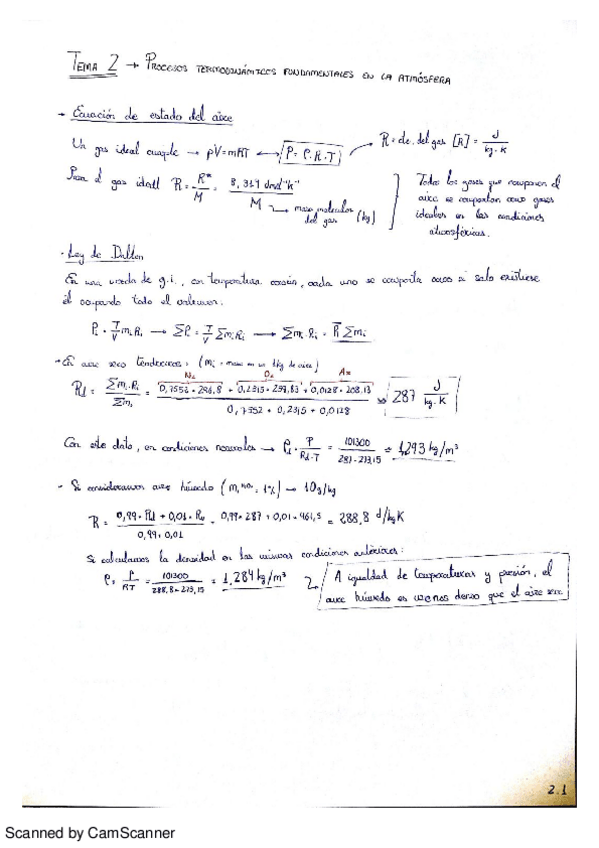 TEMA 2 → PROCESOS TERMODINÁMICOS FUNDAMENTALES EN LA ATMÓSFERA
→ Ecuación de estado del aire
Un gas ideal cumple → pV=mRT ↔ P=ρ.R.T → R=cte. del gas [R] = J/kg.K
Para el gas ideal R = R*/M = 8,314 Jmol⁻¹K⁻¹/M → masa molecular del gas (kg)
Todos los gases que componen el
aire se comportan como gases
ideales en las condiciones
atmosféricas.
· Ley de Dalton
En una mezcla de g.i., con temperatura común, cada uno se comporta como si solo existiese
él ocupando todo el volumen:
Pi = T/V mi Ri → ΣPi = T/V Σmi Ri → Σmi Ri = R̄ Σmi
→ En aire seco tendremos: (mi = masa en un 1kg de aire)
N2 O2 Ar
Rd = Σmi.Ri/Σmi = (0,7552 · 296,8 + 0,2315 · 259,83 + 0,0128 · 208,13)/(0,7552 + 0,2315 + 0,0128) ≈ 287 J/kg.K
Con este dato, en condiciones normales → ρd = P/Rd·T = 101300/287·273,15 = 1,293 kg/m³
- Si consideramos aire húmedo (mv 1%) → 10g/kg
R = (0,99 · Rd + 0,01 · Rv)/(0,99+0,01) = 0,99 · 287 + 0,01 · 461,5 = 288,8 J/kgK
Si calculamos la densidad en las mismas condiciones anteriores:
ρ = P/RT = 101300/288,8·273,15 = 1,284 kg/m³
A igualdad de temperaturas y presión, el
aire húmedo es menos denso que el aire seco
2.1
Scanned by CamScanner